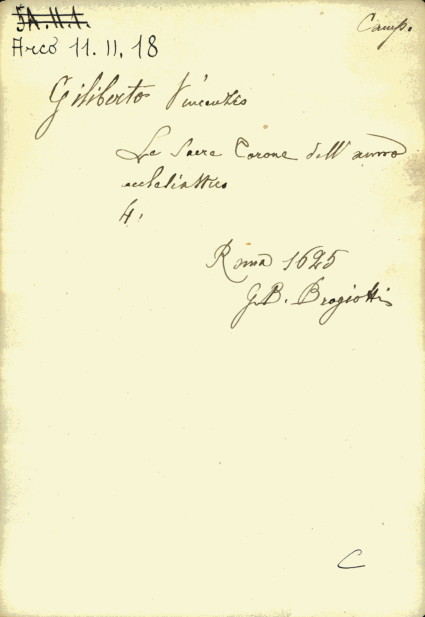 5A.11.1.
Camp.
Arcò 11.11.18
Giliberto Vincenzo
Le Sacre Corone dell'anno
ecclesiastico
4.
Roma 1625
G.B. Brogiotti
C